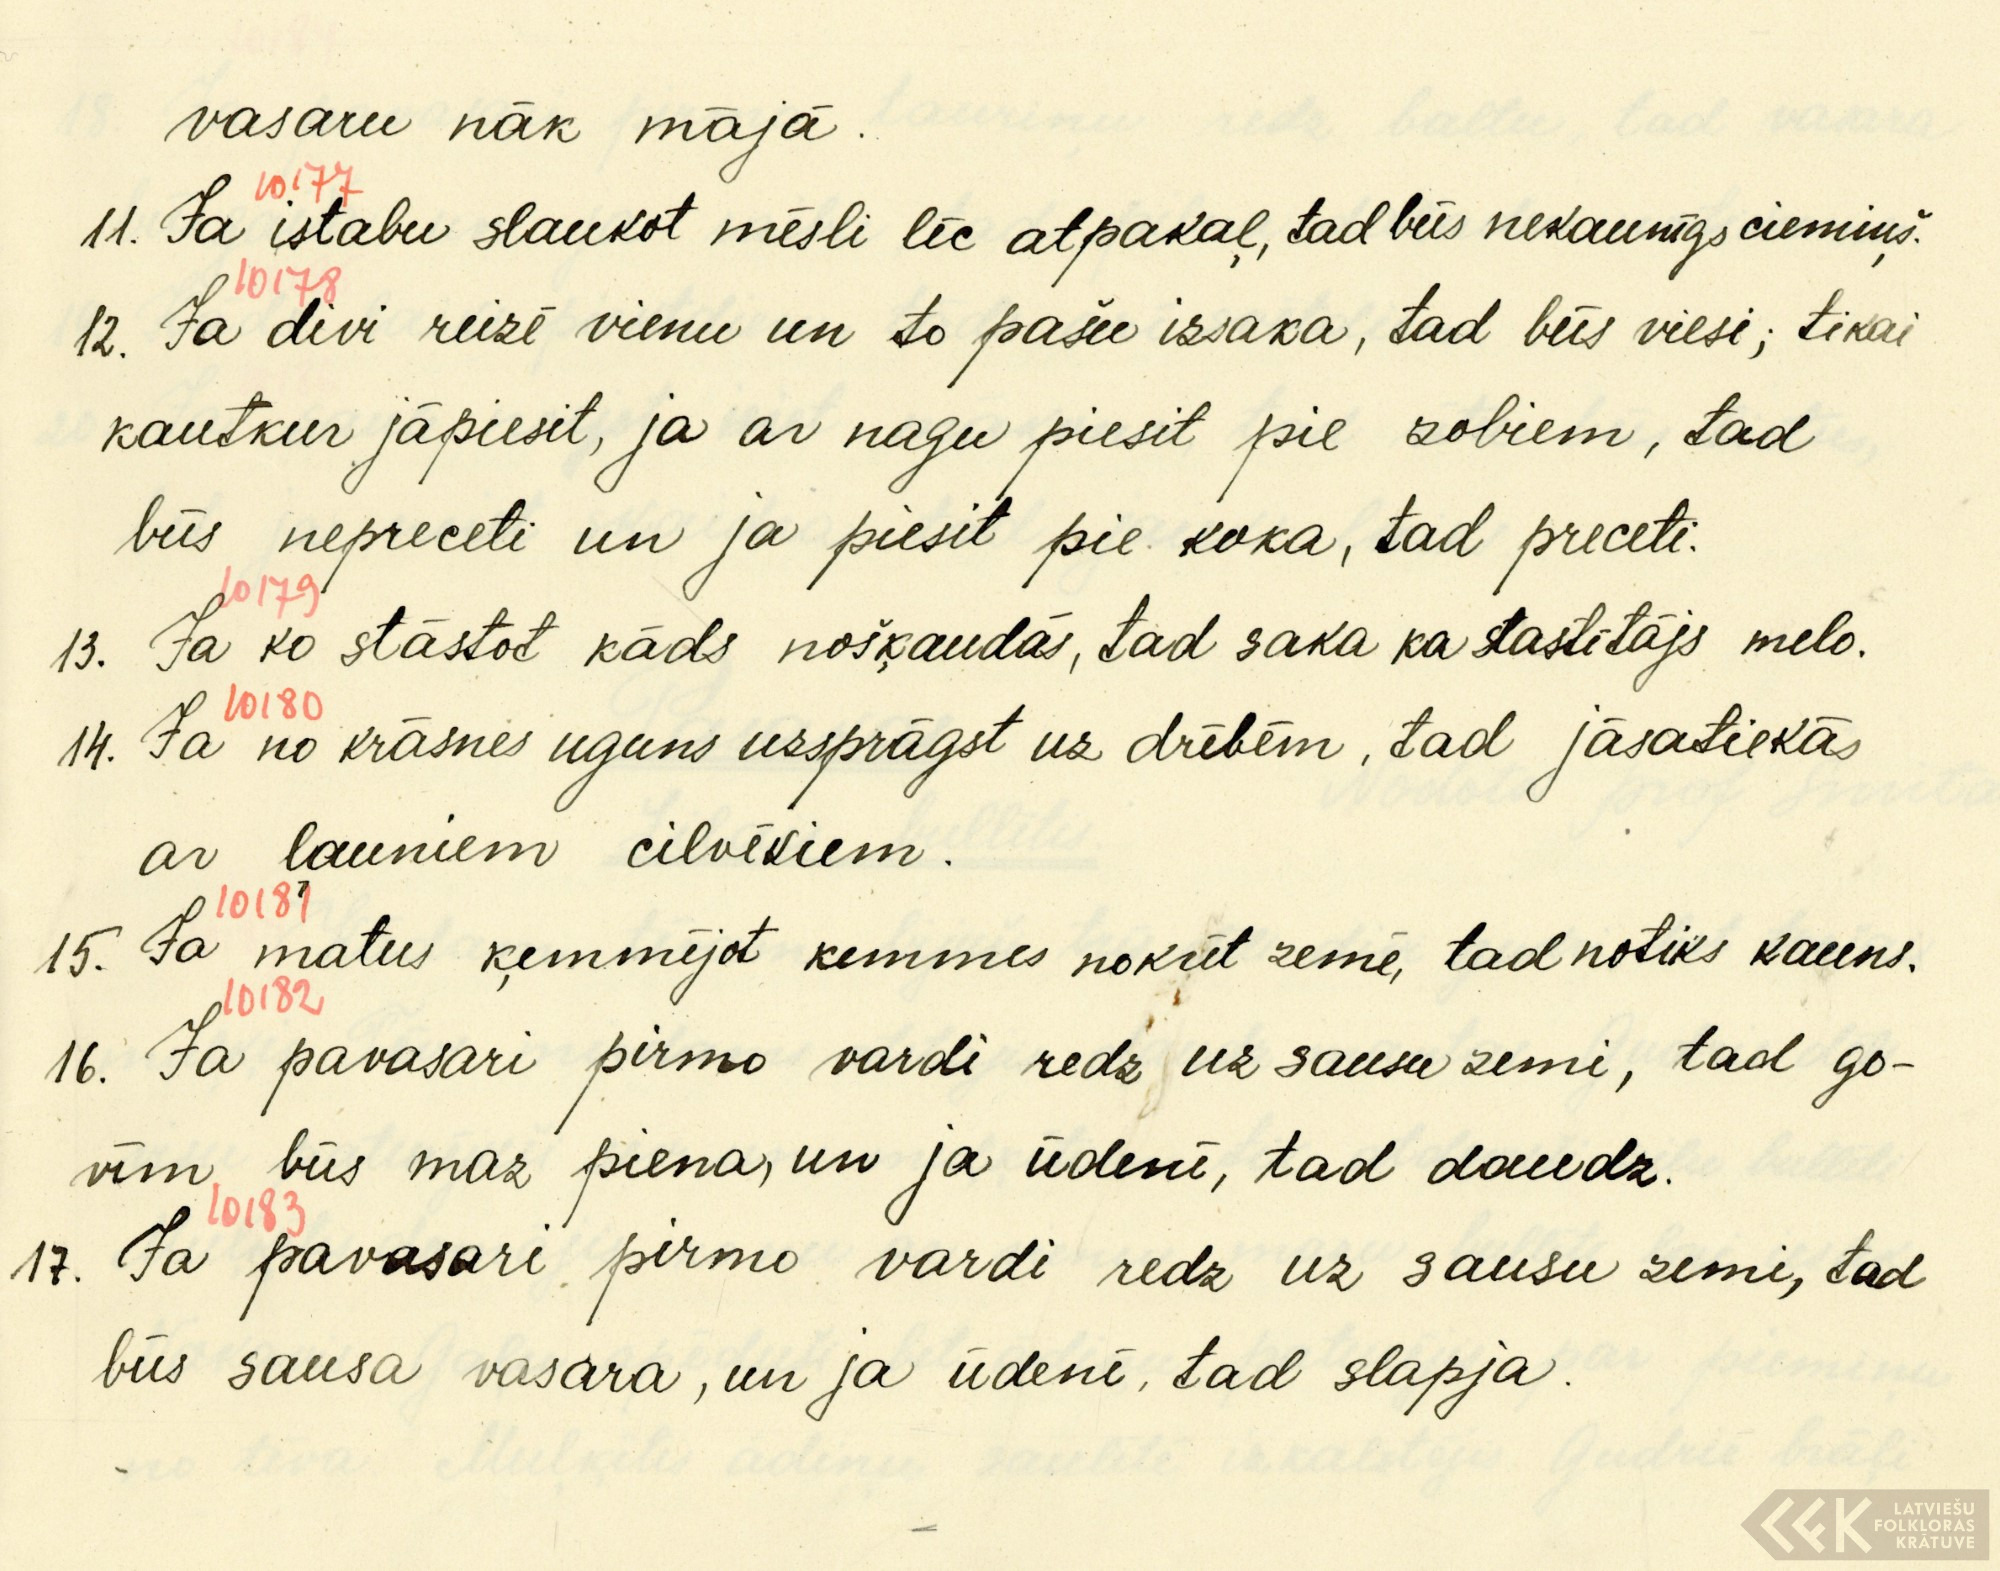 vasaru nāk mājā.
10177
11. Ja istabu slaukot mēsli lēc atpakaļ, tad būs nekaunīgs ciemiņš.
10178
12. Ja divi reizē vienu un to pašu izsaka, tad būs viesi; tikai
kautkur jāpiesit, ja ar nagu piesit pie zobiem, tad
būs nepreceti un ja piesit pie koka, tad preceti.
10179
13. Ja ko stāstot kāds nošķaudās, tad saka ka stastītājs melo.
10180
14. Ja no krāsnes uguns uzsprāgst uz drēbēm, tad jāsatiekās
ar launiem cilvēkiem.
10181
15. Ja matus ķemmējot kemmes nokrīt zemē, tad notiks kauns.
10182
16. Ja pavasari pirmo vardi redz uz sausu zemi, tad go-
vīm būs maz piena, un ja ūdenī, tad daudz.
10183
17. Ja pavasari pirmo vardi redz uz sausu zemi, tad
būs sausa vasara, un ja ūdenī, tad slapja.
LATVIEŠU
FOLKLORAS
KRĀTUVE